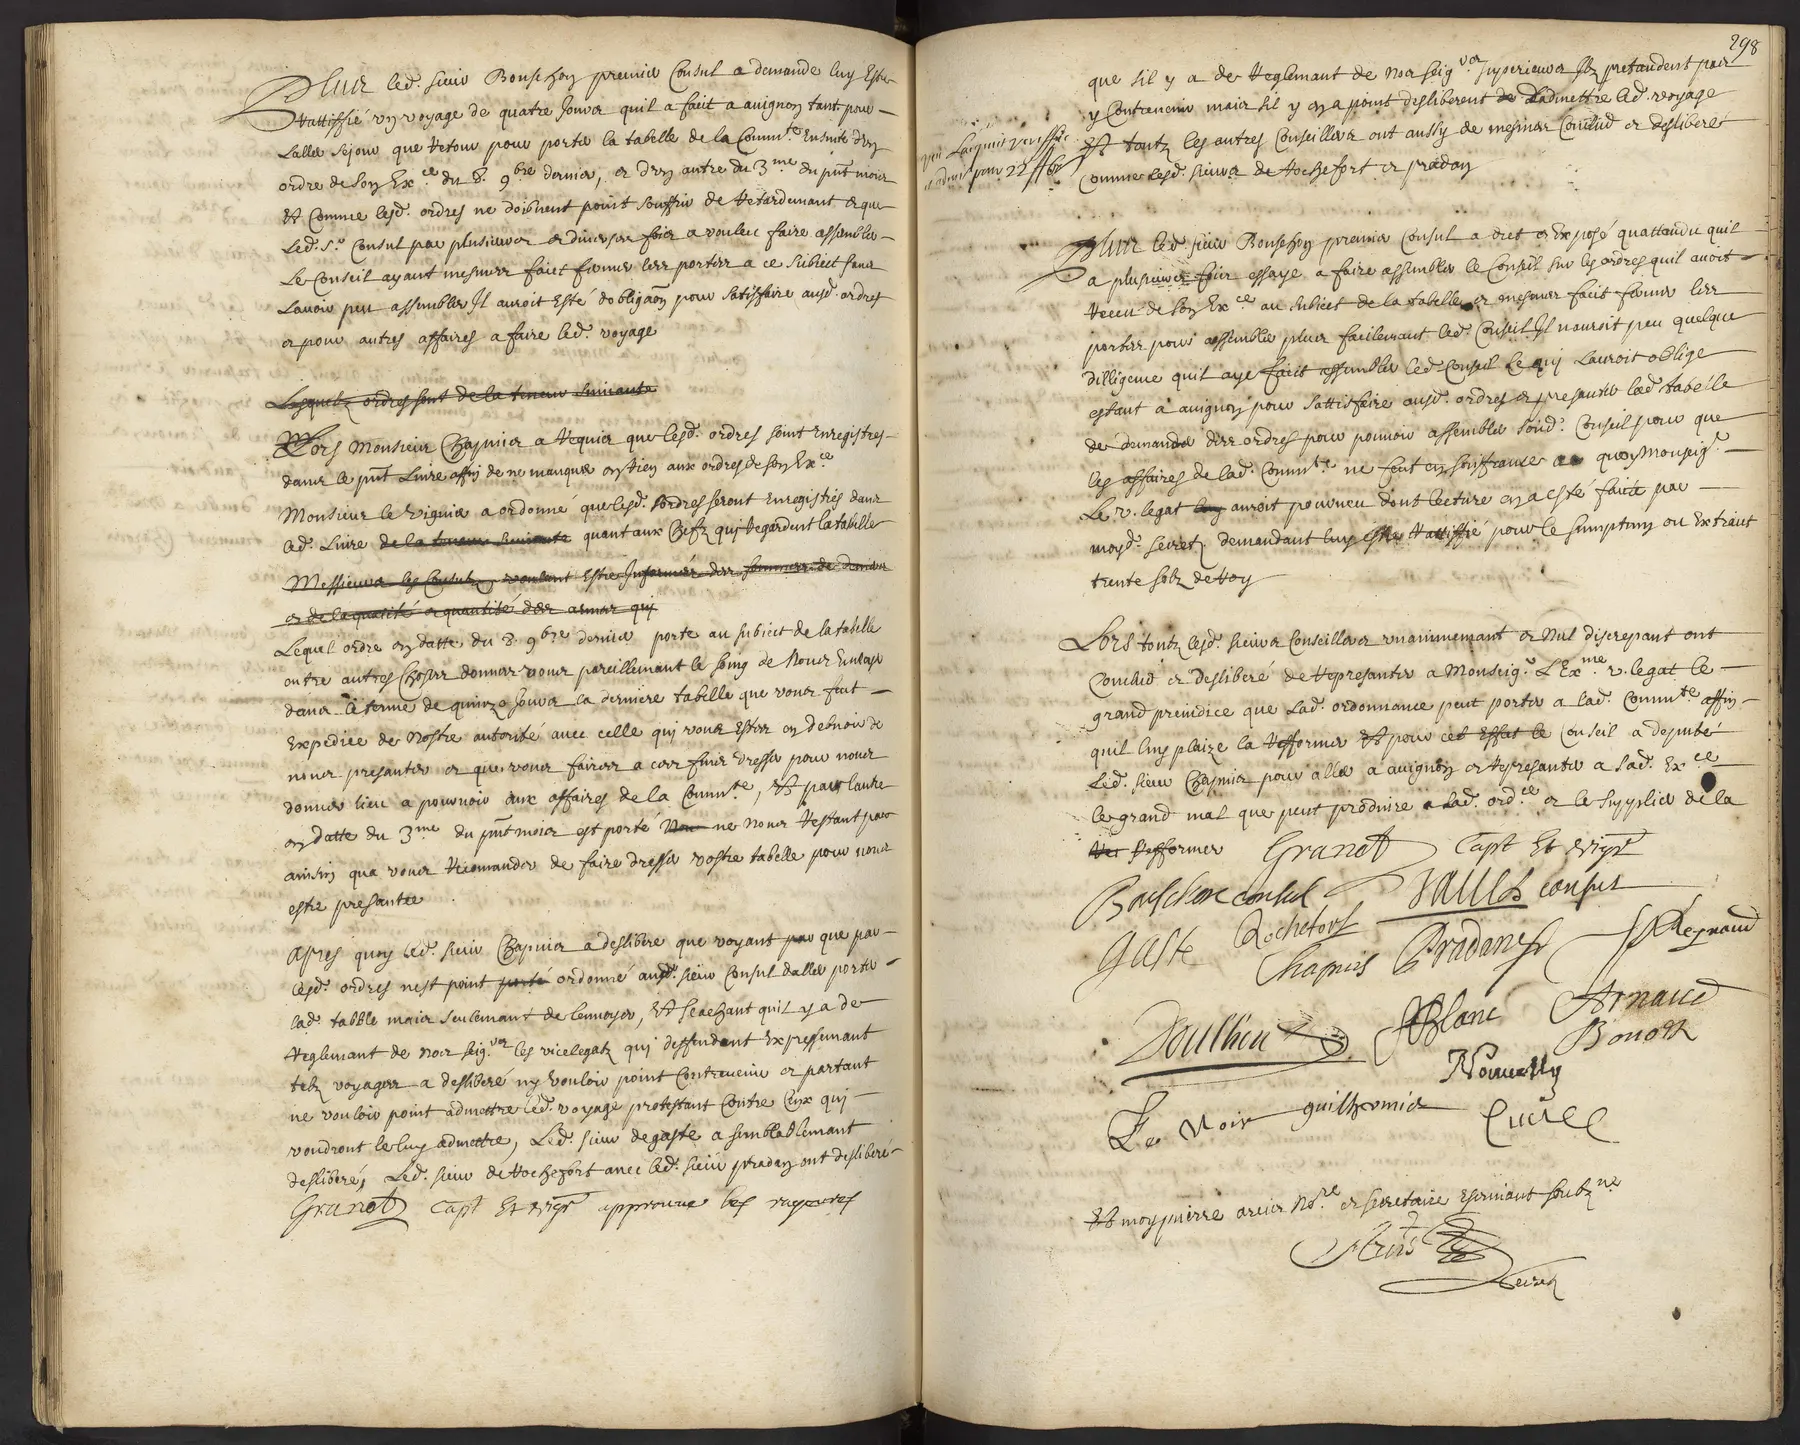 Plus led. sieur Bouschon premier Consul a demande luy Estre
Rattiffié un voyage de quatre Jours quil a fait a avignon tant pour
Laller sejour que Retour pour porter la tabelle de la Commte Ensuite dun
ordre de son Exce du 8. 9bre dernier, et dun autre du 3me du pnt mois
Et Comme lesd. ordres ne doibvent point souffrir de Retardemant et que
Led. Sr Consul par plusieurs et diverses fois a voulcu faire assembler
Le Conseil ayant mesmes fait fermer les portes a ce subiect sans
Lavoir peu assembler Il auroit Esté dobligaon pour satisfaire ausd. ordres
et pour autres affaires a faire led. voyage
Lesquels ordres sont de la teneur suivante
Lors Monsieur Chapuis a Requis que lesd. ordres soint Enregistres
dans le pnt Livre affin de ne manquer en Rien aux ordres de son Exce
Monsieur le viguier a ordonné que lesd. ordres seront Enregistrés dans
led. Livre de la teneur suivante quant aux Chefz qui Regardent la tabelle
Messieurs les Consulz, voulant Estre Informés des sommes de deniers
et de la qualité et quantité des armes qui
Lequel ordre en datte du 8. 9bre dernier porte au subiect de la tabelle
entre autres Choses donnes vous pareillemant le soing de Nous Envoyer
dans le terme de quinze Jours la derniere tabelle que vous feut
Expediee de Nostre autorité avec celle qui vous Estes en debvoir de
nous presanter et que vous faires a ces fins dresser pour nous
donner lieu a pourvoir aux affaires de la Commte, Et par lautre
en datte du 3me du pnt mois est porté Nou ne Nous Restant pas
ainsin qua vous Recomander de faire dresser vostre tabelle pour nous
estre presantée
Apres quoy led. sieur Chapuis a deslibere que voyant par que par
lesd. ordres nest point porté ordonné aud. sieur Consul daller porter
lad. tabble mais seulemant de lenvoyer, Et scachant quil y a de
Reglemant de nos seigrs les vicelegatz qui deffendent Expressemant
telz voyages a desliberé ny vouloir point Contrevenir et partant
ne vouloir point admettre led. voyage protestant Contre Ceux qui
voudront le luy admettre, Led. sieur de gaste a semblablemant
desliberé, Led. sieur de Rochefort avec led. sieur pradon ont desliberé
Granet Capt Et vigr approuve les rayeures
298
que sil y a de Reglemant de nos seigrs superieurs Ilz pretandent pas
y Contrevenir mais sil y en a point desliberent de Ladmettre led. voyage
Et toutz les autres Conseillers ont aussy de mesmes Conclud et desliberé
Comme lesd. sieurs de Rochefort et pradon
Plus led. sieur Bouschon premier Consul a dict et Exposé quattandu quil
a plusieurs fois essaye a faire assembler le Conseil sur les ordres quil avoit
Receu de son Exce au subiect de la tabelle et mesmes fait fermer les
portes pour assembler plus facilemant led. Conseil Il nauroit peu quelque
dilligence quil aye fait assembler led. Conseil Ce qui Lauroit oblige
estant a avignon pour sattisfaire ausd. ordres et presanter lad. tabelle
de demander des ordres pour pouvoir assembler sond. Conseil pour que
les affaires de lad. Commte ne feut en souffrance a quoy Monseigr
Le v. legat luy auroit pourveu dont lecture en a esté faite par
moyd. secret. demandant luy estre Rattiffié pour le sumptum ou Extrait
trente solz de Roy
Lors toutz lesd. sieurs Conseillers unanimemant et Nul discrepant ont
Conclud et desliberé de Representer a Monseigr L'Exme v. legat le
grand preiudice que lad. ordonnance peut porter a lad. Commte affin
quil luy plaize la Refformer Et pour cet Effet le Conseil a deputé
Led. sieur Chapuis pour aller a avignon et Represanter a sad. Exce
le grand mal que peut produire a lad. ordce et le supplier de la
Refformer Granet Capt Et vigr
Bouschon consul Vaulx consul
Gaste Rochefort Chapuis Pradon Reynaud
Soullier Blanc Arnaud
Bonot
Nouvelly
Le Noir guilhermier
Et moy pierre arcier Nore et secretaire Escrivant soubzne
Arcis
Secret.